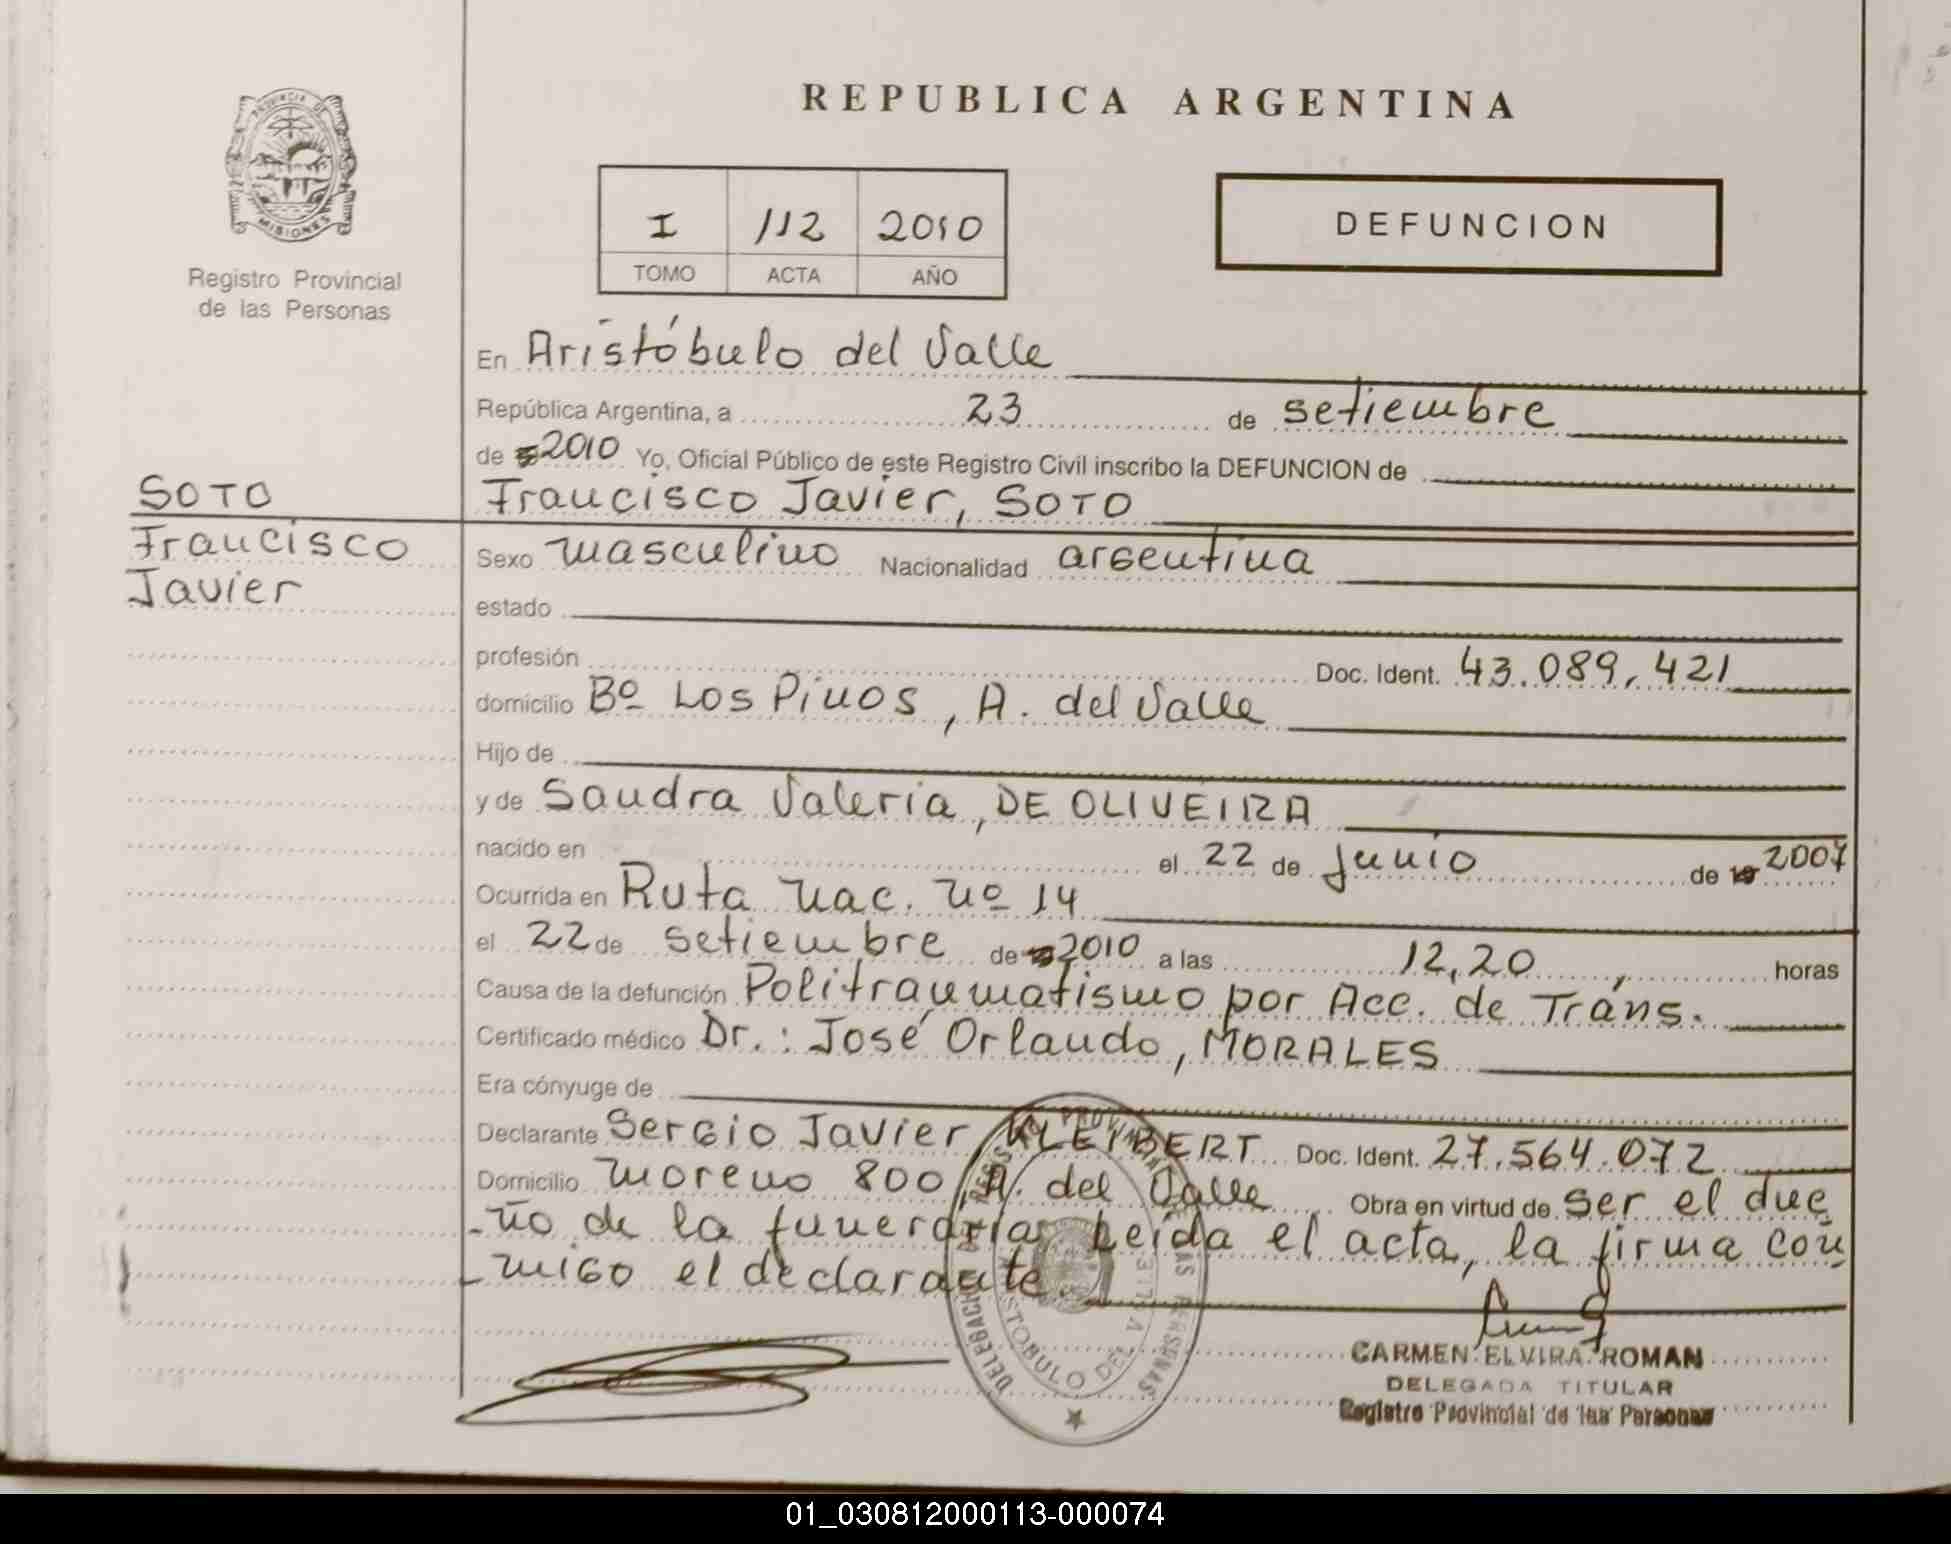 REPUBLICA ARGENTINA
PROVINCIA DE
MISIONES
Registro Provincial
de las Personas
I 112 2010
TOMO ACTA AÑO
DEFUNCION
En Aristóbulo del Valle
República Argentina, a 23 de setiembre
de 2010 Yo, Oficial Público de este Registro Civil inscribo la DEFUNCION de
SOTO
Francisco
Javier
Francisco Javier, SOTO
Sexo masculino Nacionalidad argentina
estado
profesión Doc. Ident. 43.089.421
domicilio Bº Los Pinos, A. del Valle
Hijo de
y de Sandra Valeria, DE OLIVEIRA
nacido en el 22 de junio de 2007
Ocurrida en Ruta nac. nº 14
el 22 de setiembre de 2010 a las 12,20 horas
Causa de la defunción Politraumatismo por Acc. de Tráns.
Certificado médico Dr.: José Orlando, MORALES
Era cónyuge de
Declarante Sergio Javier, KLEIBERT Doc. Ident. 27.564.072
Domicilio Moreno 800, A. del Valle Obra en virtud de ser el due
-ño de la funeraria Leída el acta, la firma con
-migo el declarante.
CARMEN ELVIRA ROMAN
DELEGADA TITULAR
Registro Provincial de las Personas
01_030812000113-000074